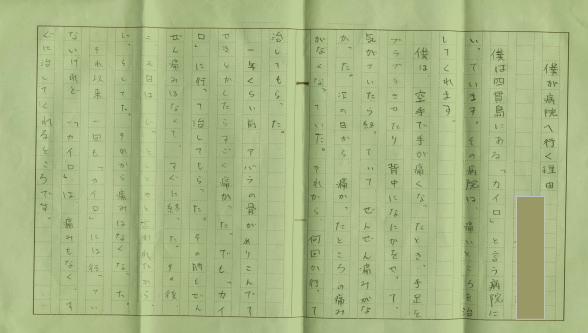 僕が病院へ行く理由
僕は四貫島にある「カイロ」と言う病院に
い。ています。その病院は、痛いところを治
してくれます。
僕は、空手で手が痛くな。たとき、手足を
ブラブラさせたり、背中になにかをや。て、
気がついたら終。ていて、ぜんぜん痛みがな
か。た。次の日から、痛か。たところの痛み
がなくな。ていた。それから、何回か行。て
治してもら。た。
一年くらい前、アバラの骨が
せきとかしたらすごく痛か。た。でも「カイ
ロ」に行。て治してもら。た。その時もぜん
ぜん痛みはなくて、すぐに終。た。その後、
二、三日は
した。それから痛みはなくな。た。
それ以来、一回も「カイロ」には行。てい
ないけれど、「カイロ」は、痛みもなく、す
ぐに治してくれるところです。